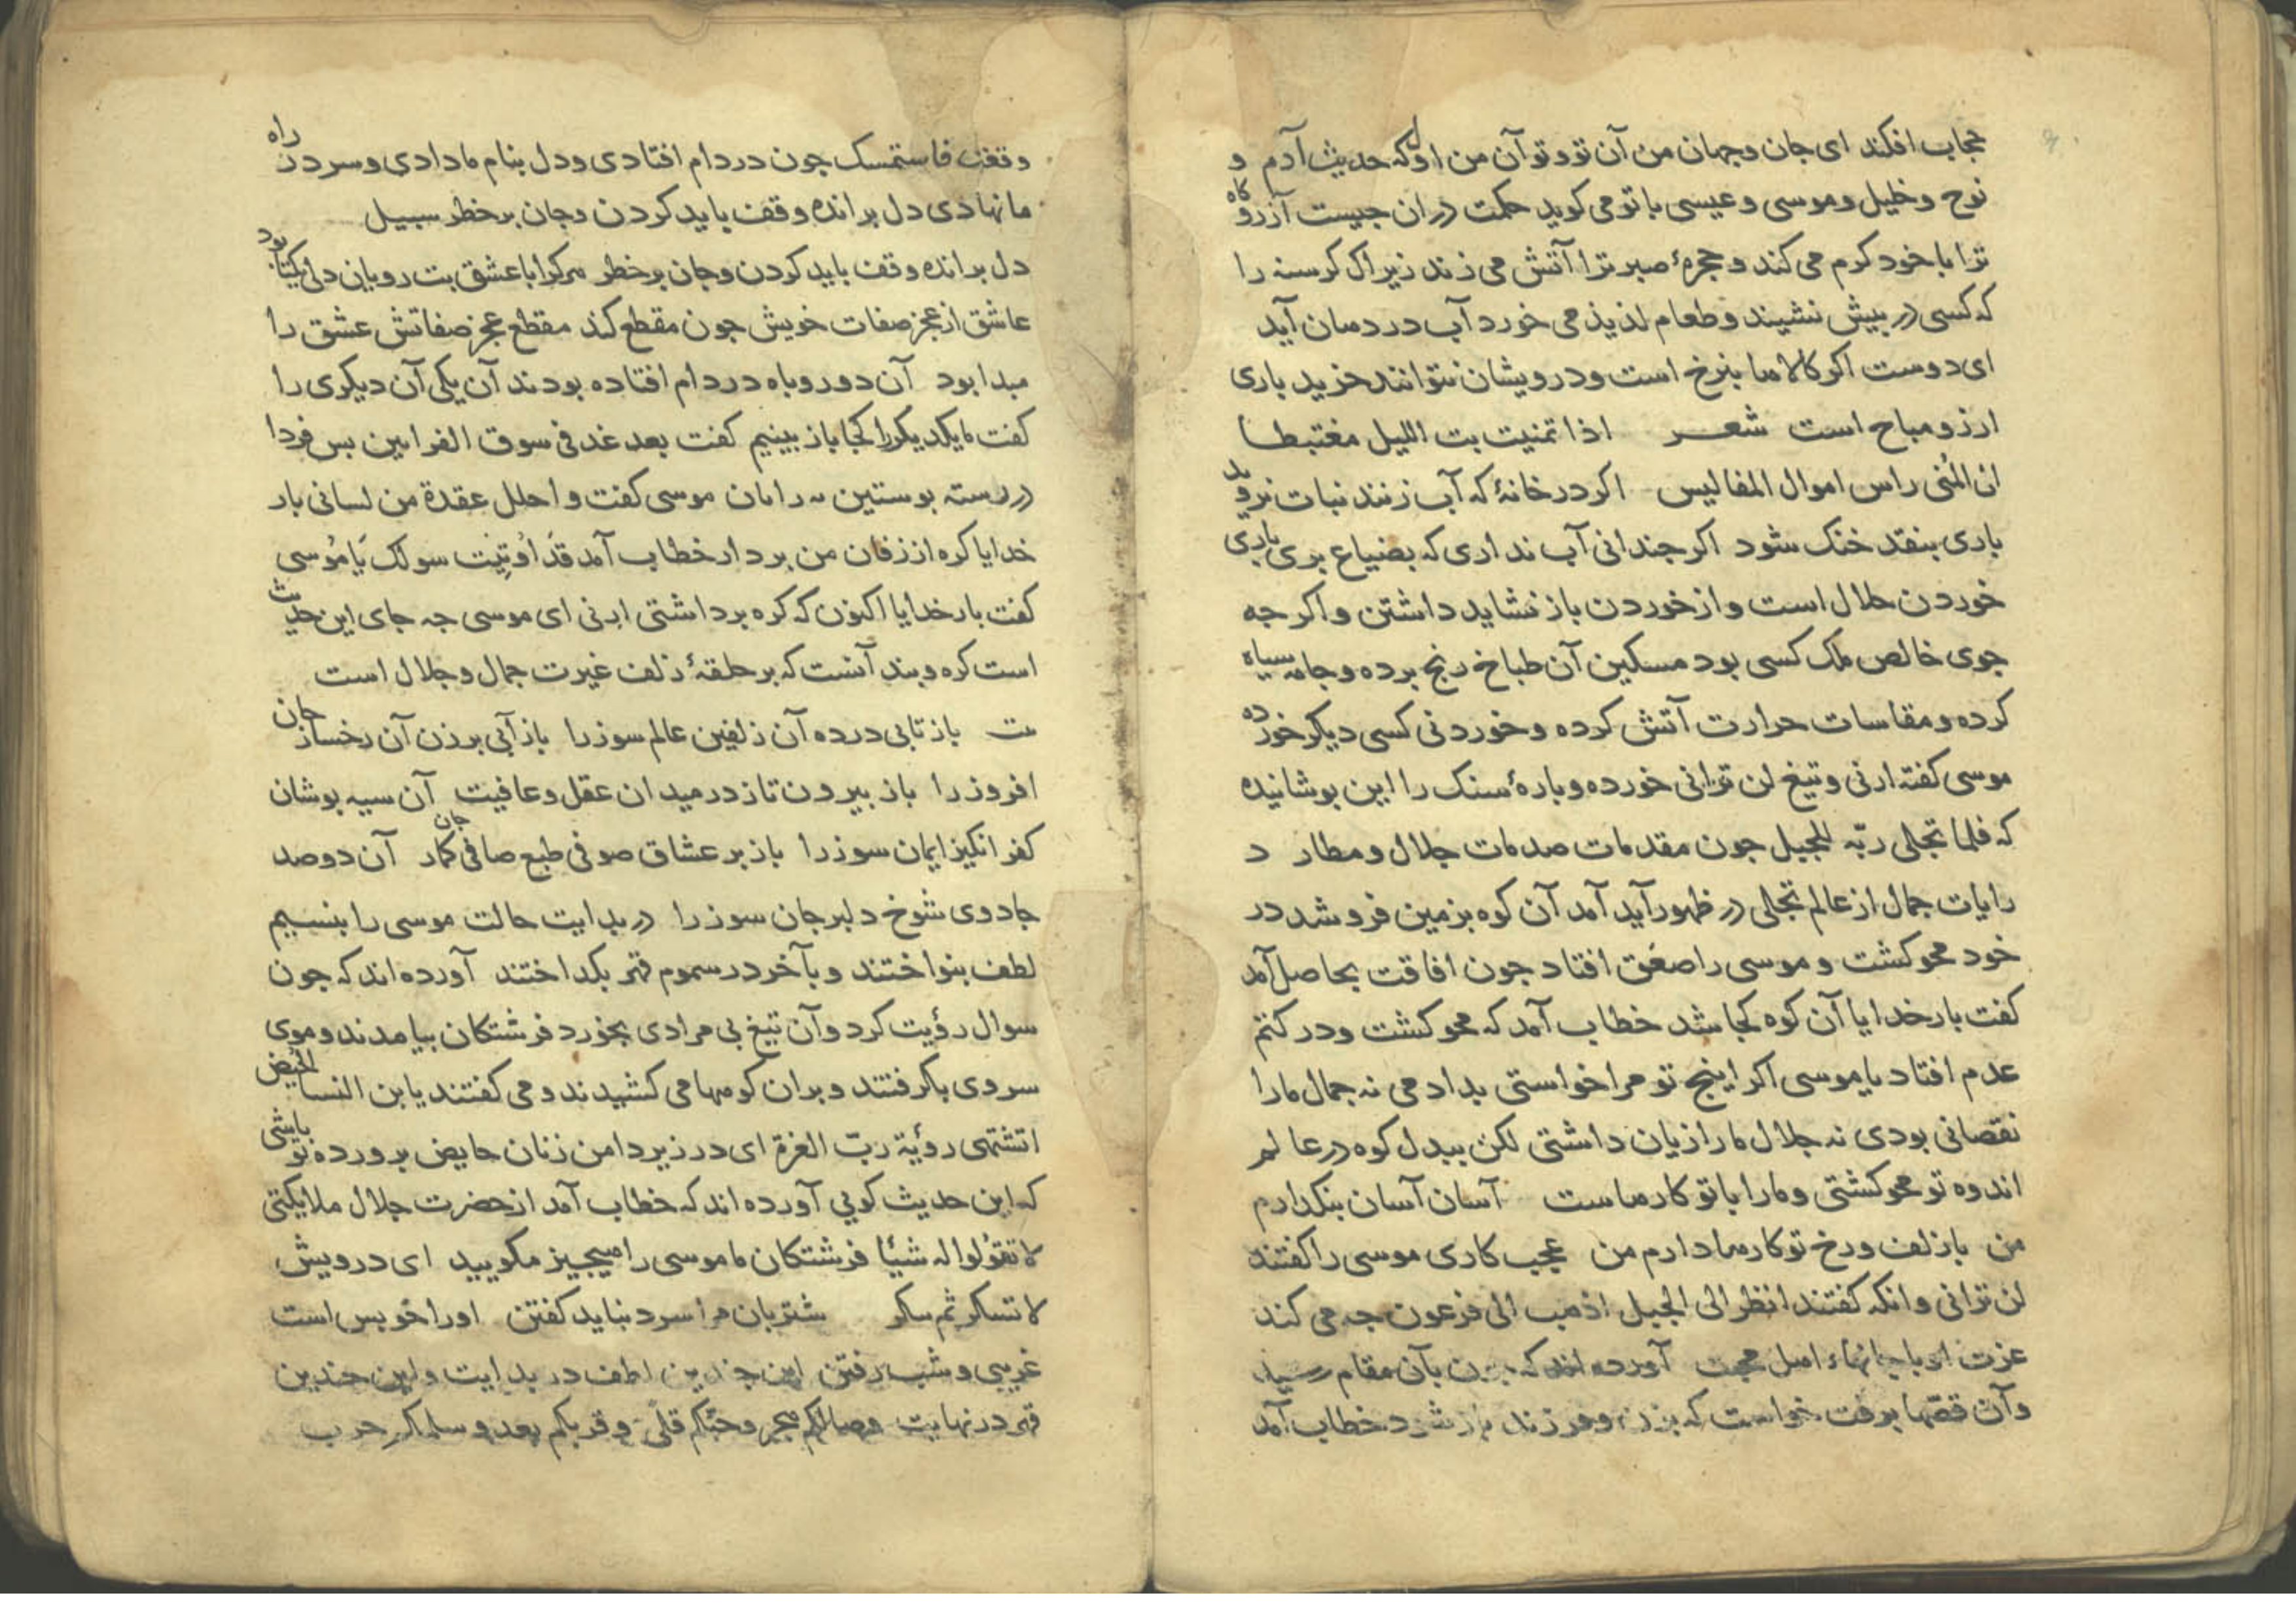 حجاب افکند ای جان و جهان من آن تو و تو آن من اول که حدیث آدم و
نوح و خلیل و موسی و عیسی با تو می کوید حکمت در ان جیست آزروکاه
ترا با خود کرم می کند و حجرهٔ صبر ترا آتش می زند زیراک کرسنه را
که کسی در پیش نشیند و طعام لذیذ می خورد آب در دهان آید
ای دوست اکر کالاها بنرخ است و درویشان نتوانند خرید باری
ارزو مباح است شعر اذا تمنیت بت اللیل مغتبطا
ان المُنی راس اموال المفالیس اکر در خانهٔ که آب زنند نبات نروید
باری بنقد خنک شود اکر جندانی آب نداری که بضیاع بری باری
خوردن حلال است و از خوردن باز نشاید داشتن و اکر جه
جوی خالص ملک کسی بود مسکین آن طباخ رنج برده و جامه سیاه
کرده و مقاسات حرارت آتش کرده و خوردنی کسی دیکر خورده
موسی کفته ارنی و تیغ لن ترانی خورده و بارهٔ سنک را این بوشانیده
که فلما تجلی ربّه للجبل جون مقدمات صدمات جلال و مطارد
رایات جمال از عالم تجلی در ظهور آید آمد آن کوه بزمین فرو شد در
خود محو کشت و موسی را صعق افتاد جون افاقت بحاصل آمد
کفت بار خدایا آن کوه کجا شد خطاب آمد که محو کشت و در کتم
عدم افتاد یا موسی اکر اینج تو مرا خواستی بدادمی نه جمال مارا
نقصانی بودی نه جلال مارا زیان داشتی لکن ببدل کوه در عالم
اندوه تو محو کشتی و مارا با تو کارهاست آسان آسان بنکدارم
من با زلف و رخ تو کارها دارم من عجب کاری موسی را کفتند
لن ترانی و انکه کفتند انظر الی الجبل اذهب الی فرعون جه می کند
عزت او با جانهاء اهل محبت آورده اند که جون بآن مقام رسید
و آن قصّها برفت خواست که بزن و فرزند باز شود خطاب آمد
وقفت فاستمسک جون در دام افتادی و دل بنام ما دادی و سر در راه
ما نهادی دل بر انده وقف باید کردن و جان بر خطر سبیل
دل بر انده وقف باید کردن و جان بر خطر هر کرا با عشق بت رویان دلی یکتا بود
عاشق از عجز صفات خویش جون مقطع کند مقطع عجز صفاتش عشق را
مبدا بود آن دو روباه در دام افتاده بودند آن یکی آن دیکری را
کفت ما یکدیکر را کجا باز بینیم کفت بعد غد فی سوق الفرایین بس فردا
در رسته بوستین موسی کفت و احلل عقدة من لسانی بار
خدایا کره از زفان من بردار خطاب آمد قد اوُتِیت سولک یَا مُوسی
کفت بار خدایا اکنون که کره برداشتی ارنی ای موسی جه جای این حدیث
است کره و بند آنست که بر حلقهٔ زلف غیرت جمال و جلال است
باز تابی درده آن زلفین عالم سوز را باز آبی برزن آن رخسار جان
افروز را باز بیرون تاز در میدان عقل و عافیت آن سیه بوشان
کفر انکیز ایمان سوز را باز بر عشاق صوفی طبع صافی جان کمار آن دو صد
جادوی شوخ دلبر جان سوز را در بدایت حالت موسی را بنسیم
لطف بنواختند و بآخر در سموم قهر بکداختند آورده اند که جون
سوال رؤیت کرد و آن تیغ بی مرادی بخورد فرشتکان بیامدند و موی
سر وی باکرفتند و بران کوهها می کشیدند و می کفتند یابن النسا الحُیض
اتشتهی رؤیة ربّ العزة ای در زیر دامن زنان حایض برورده تو باشی
که این حدیث کویی آورده اند که خطاب آمد از حضرت جلال ملایکتی
لا تقوُلوا له شیئا فرشتکان ما موسی را هیجیز مکویید ای درویش
لا تساکر ثم شتربان مرا سرد نباید کفتن اورا خو بس است
غریبی و شب رفتن این جندین لطف در بدایت و این جندین
قهر در نهایت وصالکم هجر و حبّکم قلًی و قربکم بعد و سلمکم حرب